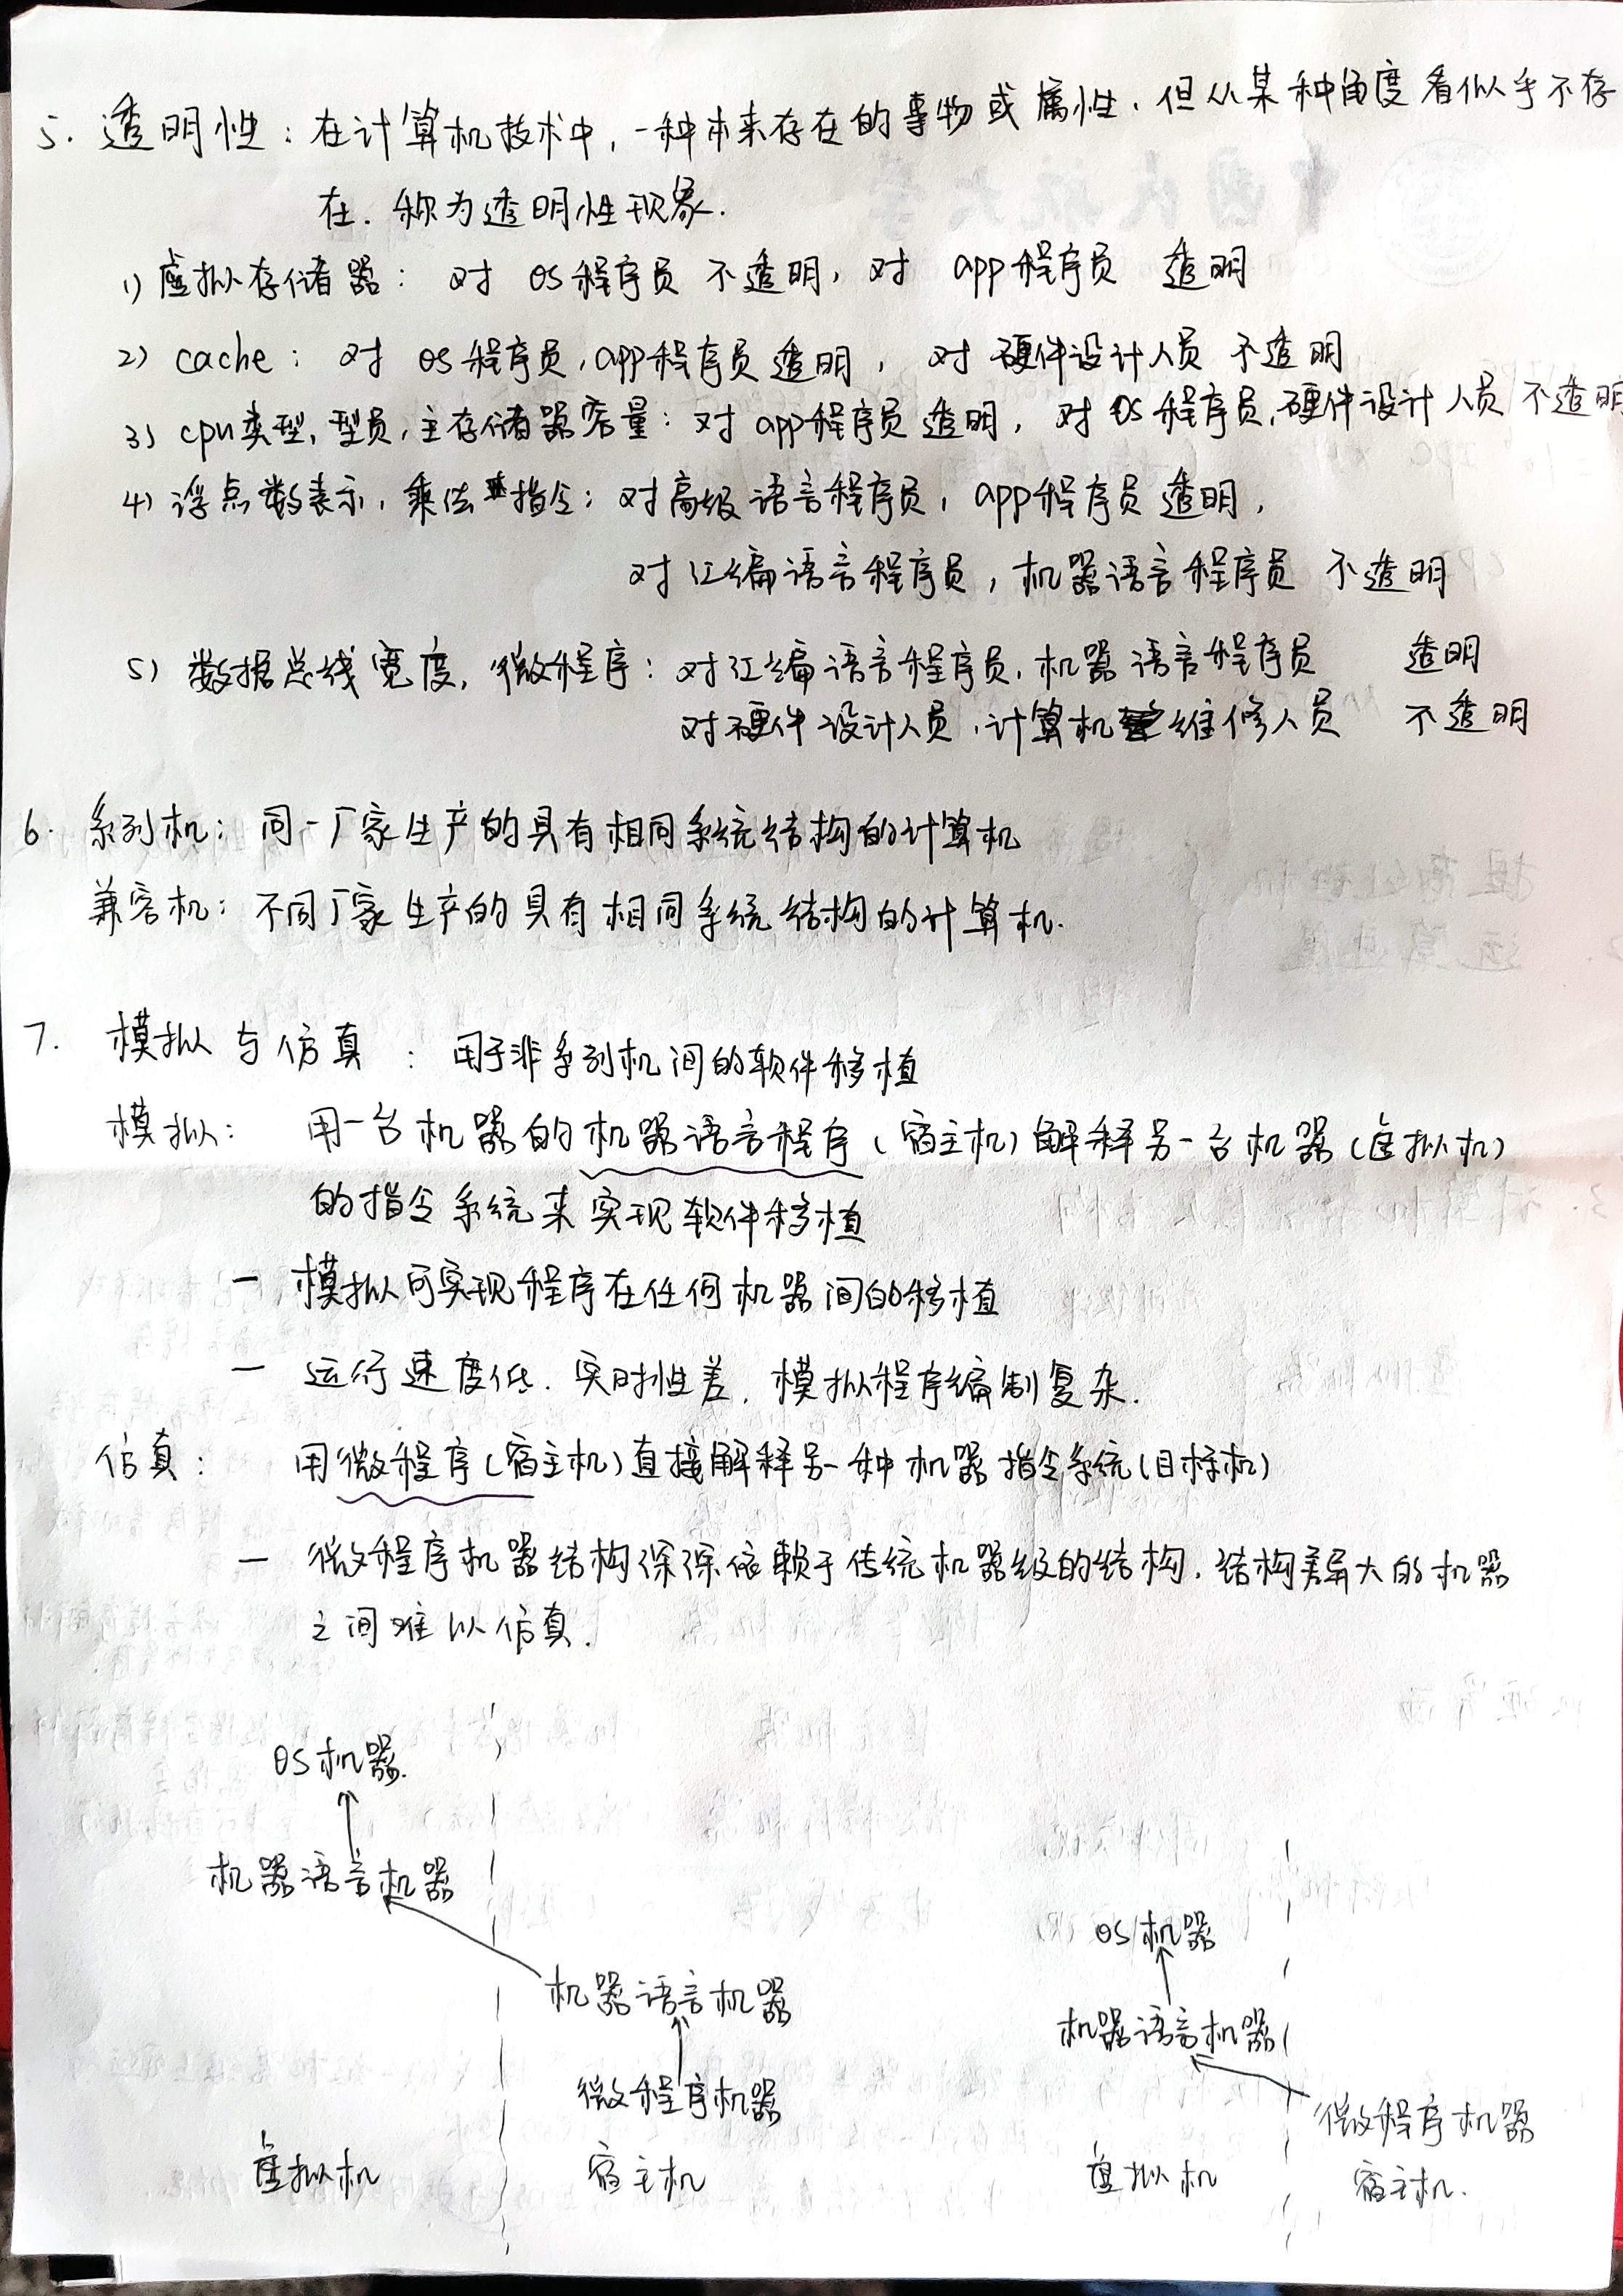 5. 透明性：在计算机技术中，一种本来存在的事物或属性，但从某种角度看似乎不存
在．称为透明性现象．
1) 虚拟存储器：对 OS程序员 不透明，对 app程序员 透明
2) cache：对 OS程序员，app程序员 透明，对 硬件设计人员 不透明
3) cpu类型，型号，主存储器容量：对 app程序员 透明，对 OS程序员，硬件设计人员 不透明
4) 浮点数表示，乘法指令：对高级语言程序员，app程序员 透明，
对汇编语言程序员，机器语言程序员 不透明
5) 数据总线宽度，微程序：对汇编语言程序员，机器语言程序员 透明
对硬件设计人员，计算机维修人员 不透明
6. 系列机：同一厂家生产的具有相同系统结构的计算机
兼容机：不同厂家生产的具有相同系统结构的计算机．
7. 模拟与仿真：用于非系列机间的软件移植
模拟：用一台机器的机器语言程序（宿主机）解释另一台机器（虚拟机）
的指令系统来实现软件移植
— 模拟可实现程序在任何机器间的移植
— 运行速度低．实时性差．模拟程序编制复杂．
仿真：用微程序（宿主机）直接解释另一种机器指令系统（目标机）
— 微程序机器结构深深依赖于传统机器级的结构．结构差异大的机器
之间难以仿真．
OS机器．
机器语言机器
机器语言机器
微程序机器
虚拟机 宿主机
OS机器
机器语言机器
微程序机器
虚拟机 宿主机．